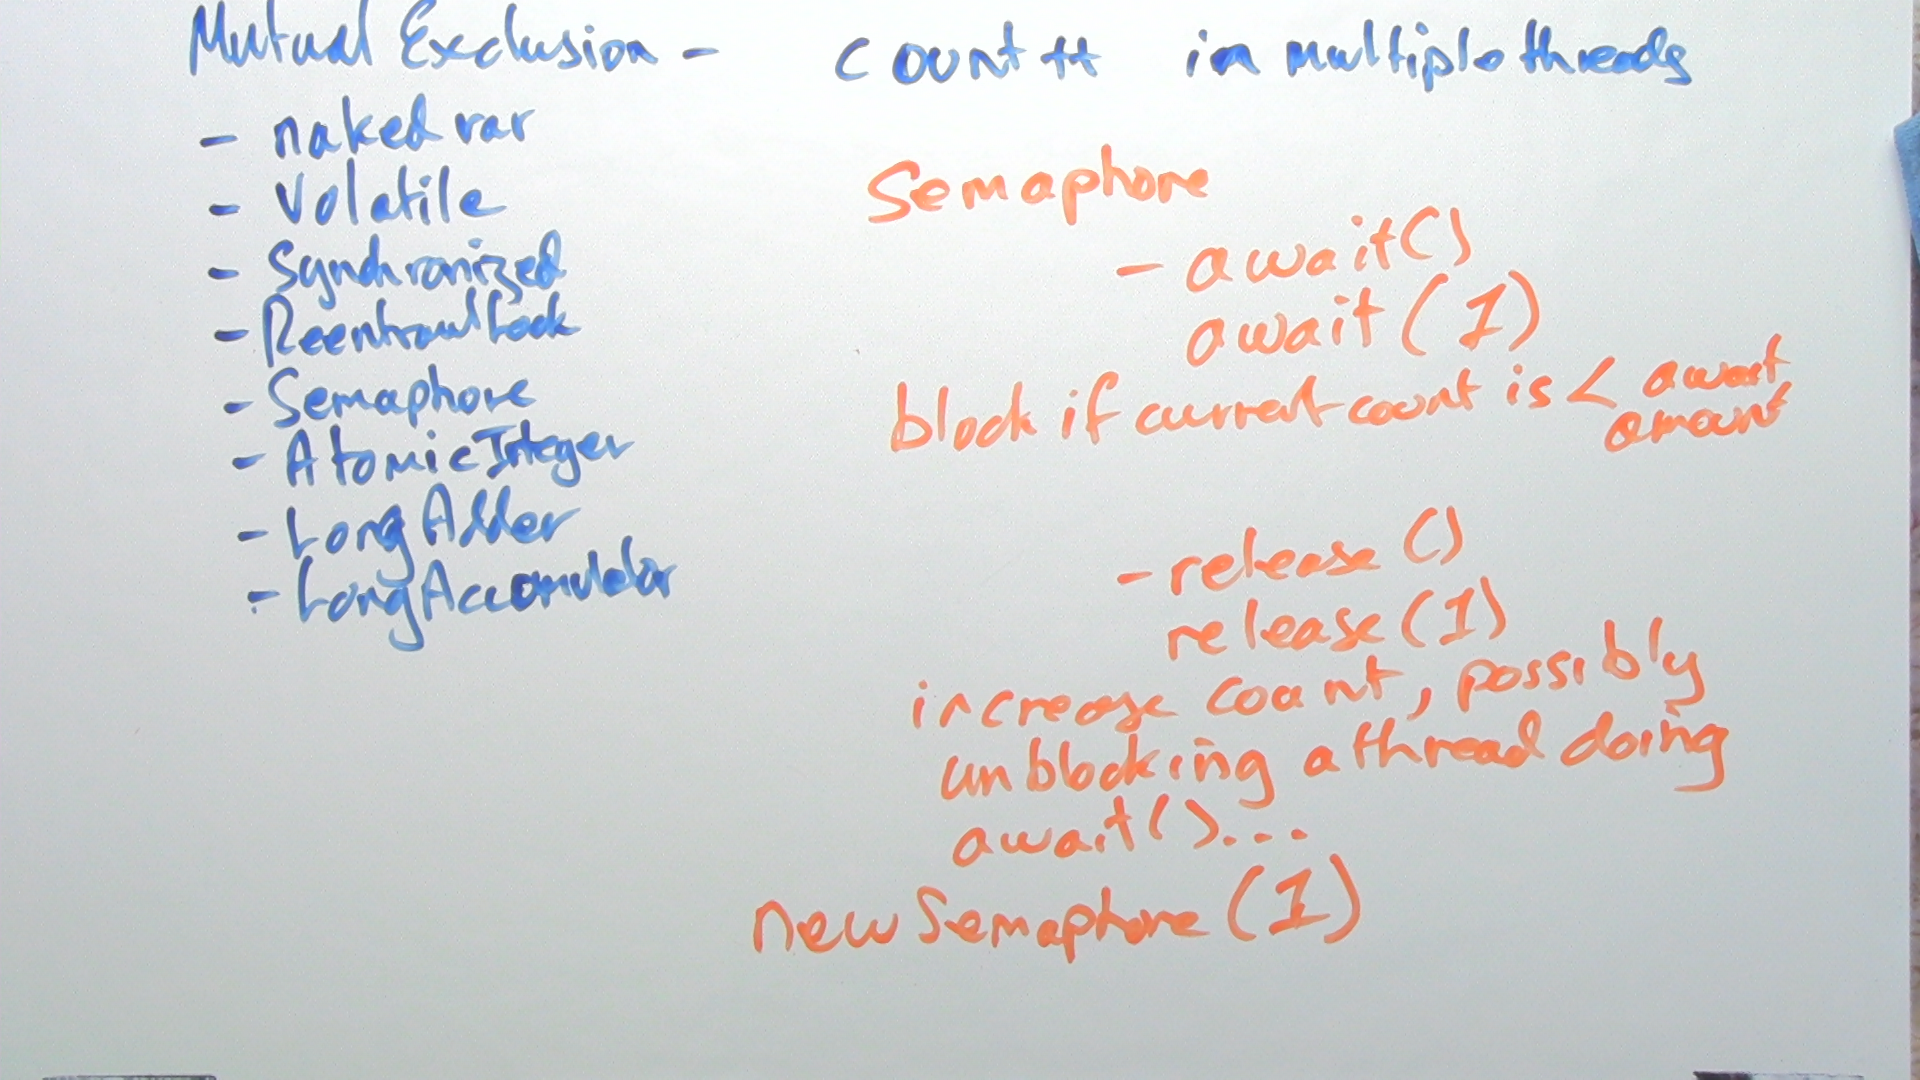 Mutual Exclusion - count++ in multiple threads
- naked var
- Volatile
- Synchronized
- ReentrantLock
- Semaphore
- AtomicInteger
- LongAdder
- LongAccomulator
Semaphore
- await()
await(1)
block if current count is < await
amount
- release()
release(1)
increase count, possibly
unblocking a thread doing
await()...
new Semaphore(1)